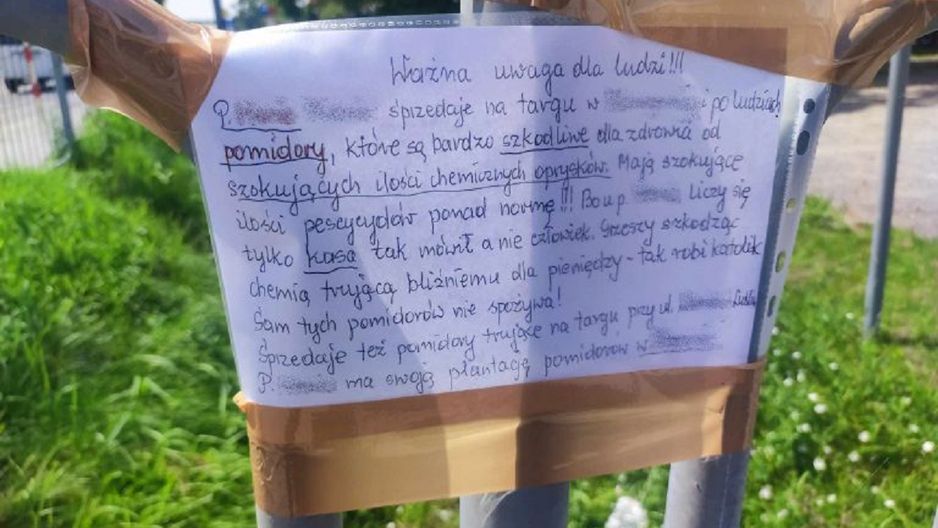 Ważna uwaga dla ludzi!!!
P. sprzedaje na targu w i po ludziach
pomidory, które są bardzo szkodliwe dla zdrowia od
szokujących ilości chemicznych oprysków. Mają szokujące
ilości pescycydów ponad normę!!! Bo u p. Liczy się
tylko kasa tak mówił a nie człowiek. Grzeszy szkodząc
chemią trującą bliźniemu dla pieniędzy - tak robi katolik
Sam tych pomidorów nie spożywa!
Sprzedaje też pomidory trujące na targu przy ul.
P. ma swoją plantagę pomidorów w